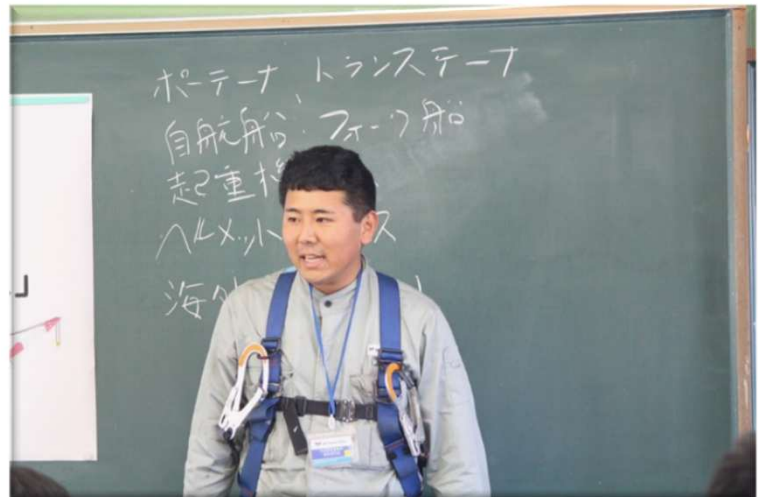 ポーテーナ トランステーナ
自航船: フォーク船
起重機
ヘルメット ス
海外
」